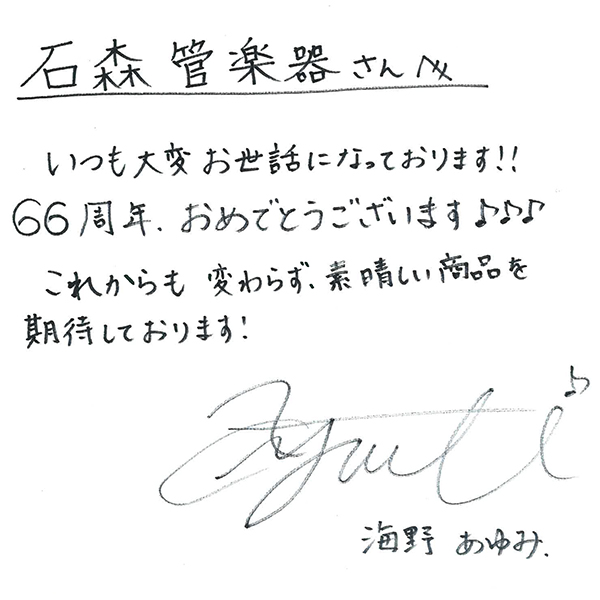 石森管楽器さんへ
いつも大変お世話になっております!!
66周年、おめでとうございます♪♪♪
これからも変わらず、素晴しい商品を
期待しております!
Ayumi♪
海野 あゆみ.